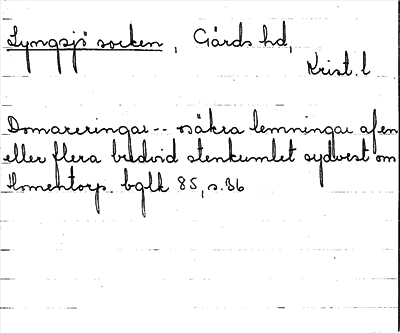 Lyngsjö socken, Gärds hd,
Krist. l
Domareringar -- osäkra lemningar af en
eller flera bredvid stenkumlet sydvest om
Homentorp. bglk 85, s. 36